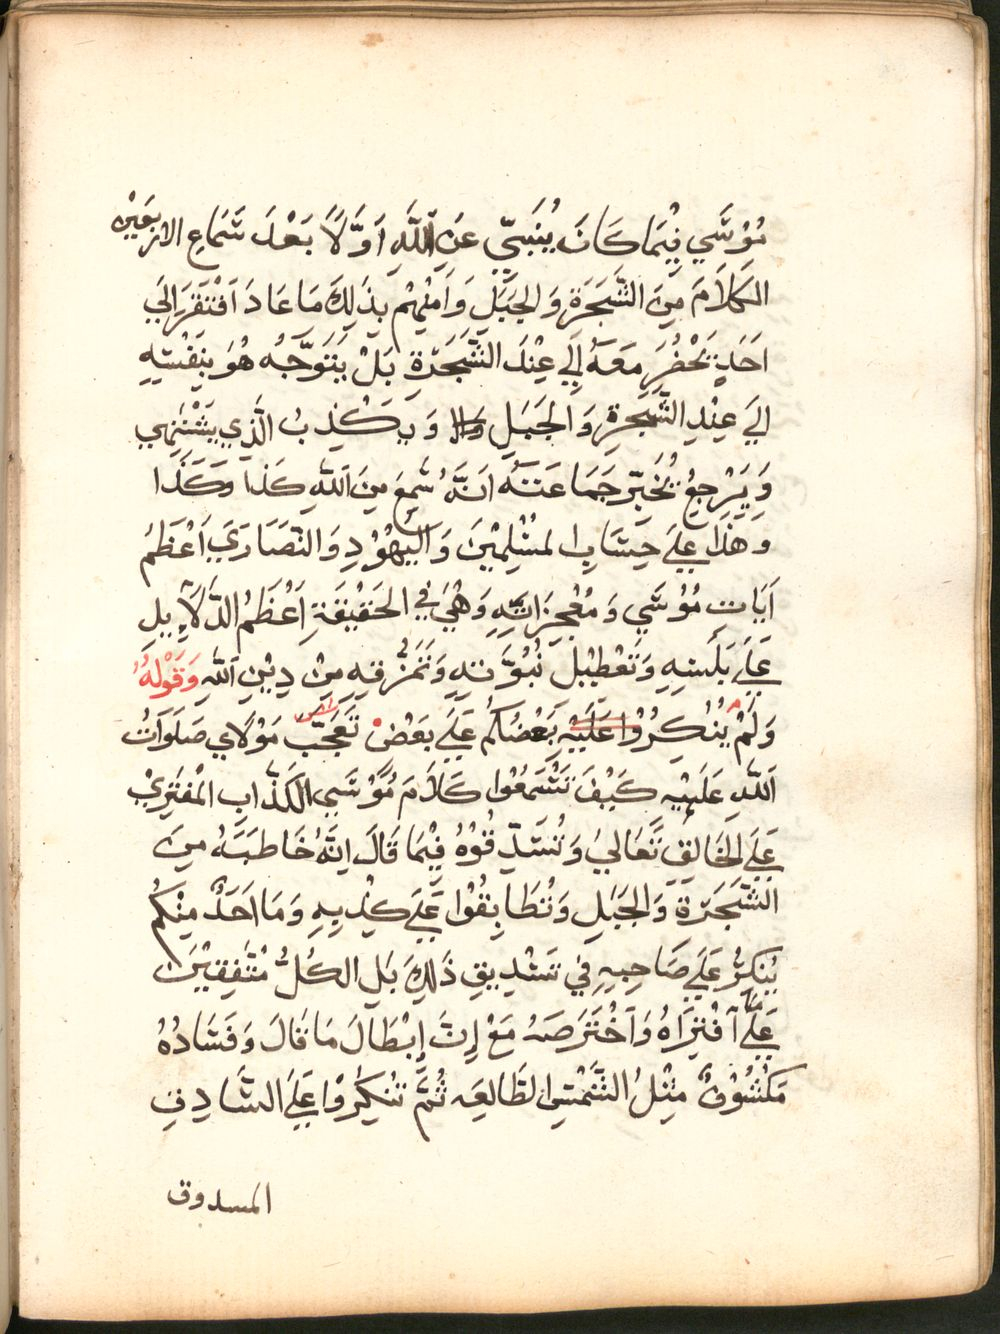 مُوْسَي فِيْمَا كَانَ يُنَبِّي عَنِ اللَّهِ اَوَّلاً بَعْدَ سَمَاعِ الاربَعِيْن
الكَلاَمَ مِنَ الشَّجَرَةِ وَالجَبَلِ وَاَمْنِهِم بِذَلِكَ مَا عَادَ اَفْتَقَرَ اِلَي
اَحَدٍ يَحْضُرَ مَعَهُ اِلَي عِنْدَ الشَّجَرَةِ بَلْ يَتَوَجَّه هُوَ بِنَفْسِهِ
اِلَي عِنْدِ الشَّجَرةِ وَالجَبَلِ وَيَكْذِبُ الَّذِي يَشْتَهِي
وَيَرْجِعُ يُخَبِّر جَمَاعَتَهُ اَنَّهُ سَمِعَ مِنَ اللَّهِ كَذَا وَكَذَا
وَهَذَا عَلَي حِسَابِ المسْلِمِيْنَ وَاليَهُوْدِ وَالنَّصَارَي اَعْظَمُ
اَيَاتِ مُوْسَي وَمُعْجِزَاتِهِ وَهْيَ فِي الحَقِيْقَةِ اَعْظَمُ الدَّلاَيِلِ
عَلَي بَلَسِهِ وَتَعْطِيْلِ نُبُوَّتِهِ وَتَمَرُّقِهِ مِنْ دِيْنِ اللَّهِ وَقَوْلهُ
وَلَمْ يُنْكِرُوْا عَلَيْهِ بَعْضُكُم عَلَي بَعْضٍ تَعَجّب مَوْلاَي صَلَوَاتُ
اللَّهِ عَلَيْهِ كَيْفَ تَسْمَعُوْا كَلاَمَ مُوْسَي الكَذَّابِ المفْتَرِيْ
عَلَي الخَالِقِ تَعَالي وَتُسَدِّقُوْهُ فِيْمَا قَالَ اِنَّهُ خَاطَبَهُ مِنَ
الشَّجَرَةِ وَالجَبَلِ وَتُطَابِقُوْا عَلَي كِذْبِهِ وَمَا اَحَدٌ مِنْكُم
يُنْكِرُ عَلَي صَاحِبِهِ فِي تَسْدِيقِ ذَلِكَ بَلِ الكُلُّ مُتَّفِقِيْنَ
عَلَي مَا اَفْتَرَاهُ وَاَخْتَرَصَهُ مَعْ اِنَّ اِبْطَالَ مَا قَالَ وَفَسَادُهُ
مَكْشُوْفٌ مِثْلُ الشَّمْسِ الطَّالِعَه ثُمَّ تُنْكِرُوْا عَلَي السَّادِقِ
المسدوق